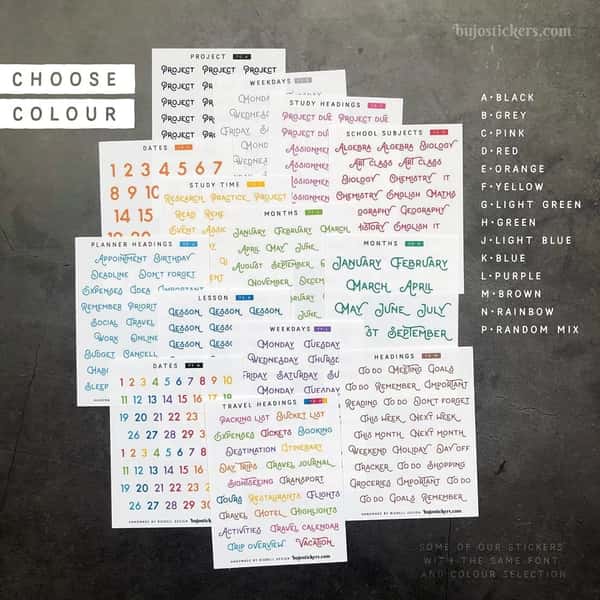 bujostickers.com
CHOOSE
COLOUR
A•BLACK
B•GREY
C•PINK
D•RED
E•ORANGE
F•YELLOW
G•LIGHT GREEN
H•GREEN
J•LIGHT BLUE
K•BLUE
L•PURPLE
M•BROWN
N•RAINBOW
P•RANDOM MIX
PROJECT
PROJECT PROJECT PROJECT
PROJECT PROJECT
PROJECT PROJECT
PROJECT PROJECT
PROJECT PROJECT
WEEKDAYS
MONDAY
WEDNESDAY
FRIDAY
STUDY HEADINGS
PROJECT DUE PROJECT DUE
PROJECT DUE
ASSIGNMENT
ASSIGNMENT
SCHOOL SUBJECTS
ALGEBRA ALGEBRA ALGEBRA
ART CLASS ART CLASS
BIOLOGY BIOLOGY
CHEMISTRY CHEMISTRY IT
CHEMISTRY ENGLISH MATHS
GEOGRAPHY GEOGRAPHY
HISTORY ENGLISH IT
DATES
1 2 3 4 5 6 7
8 9 10
14 15
STUDY TIME
RESEARCH PRACTICE PROJECT
READ
MONTHS
JANUARY FEBRUARY MARCH
APRIL MAY JUNE
AUGUST SEPTEMBER
NOVEMBER
MONTHS
JANUARY FEBRUARY
MARCH APRIL
MAY JUNE JULY
SEPTEMBER
PLANNER HEADINGS
APPOINTMENT BIRTHDAY
DEADLINE DON'T FORGET
EXPENSES IDEA IMPORTANT
REMEMBER
SOCIAL TRAVEL
WORK ONLINE
BUDGET
SLEEP
LESSON
LESSON LESSON LESSON
LESSON LESSON LESSON
WEEKDAYS
MONDAY TUESDAY
WEDNESDAY
FRIDAY SATURDAY
MONDAY TUESDAY
DATES
1 2 3 4 5 6 7 8 9 10
11 12 13 14 15 16 17 18
19 20 21 22
26 27 28 29
1 2 3 4 5 6
11 12 13 14
19 20 21 22
26 27 28 29
HANDMADE BY BIGDELL DESIGN
TRAVEL HEADINGS
PACKING LIST BUCKET LIST
EXPENSES TICKETS BOOKING
DESTINATION ITINERARY
DAY TRIPS TRAVEL JOURNAL
SIGHTSEEING TRANSPORT
TOURS RESTAURANTS FLIGHTS
TRAVEL HOTEL HIGHLIGHTS
ACTIVITIES TRAVEL CALENDAR
TRIP OVERVIEW VACATION
HANDMADE BY BIGDELL DESIGN bujostickers.com
HEADINGS
TO DO MEETING GOALS
TO DO REMEMBER IMPORTANT
READING TO DO DON'T FORGET
THIS WEEK NEXT WEEK
THIS MONTH NEXT MONTH
WEEKEND HOLIDAY DAY OFF
TRACKER TO DO SHOPPING
GROCERIES IMPORTANT TO DO
TO DO GOALS REMEMBER
HANDMADE BY BIGDELL DESIGN bujostickers.com
SOME OF OUR STICKERS
WITH THE SAME FONT
AND COLOUR SELECTION